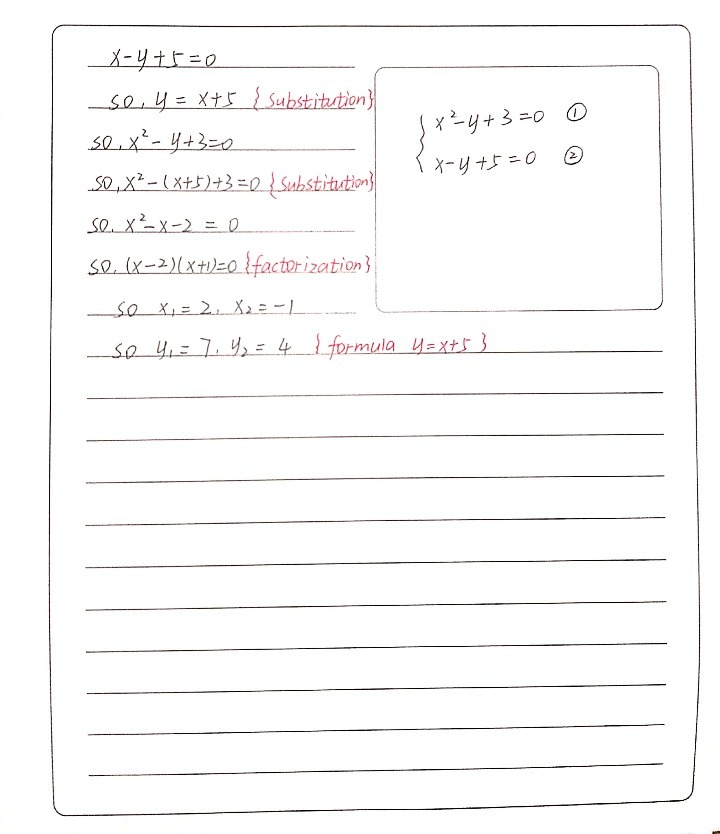 x-y+5=0
so, y = x+5 {substitution}
so, x²-y+3=0
so, x²-(x+5)+3=0 {substitution}
so. x²-x-2 = 0
so. (x-2)(x+1)=0 {factorization}
so x₁=2, x₂=-1
so y₁=7, y₂=4 {formula y=x+5}
{ x²-y+3=0 ①
x-y+5=0 ②